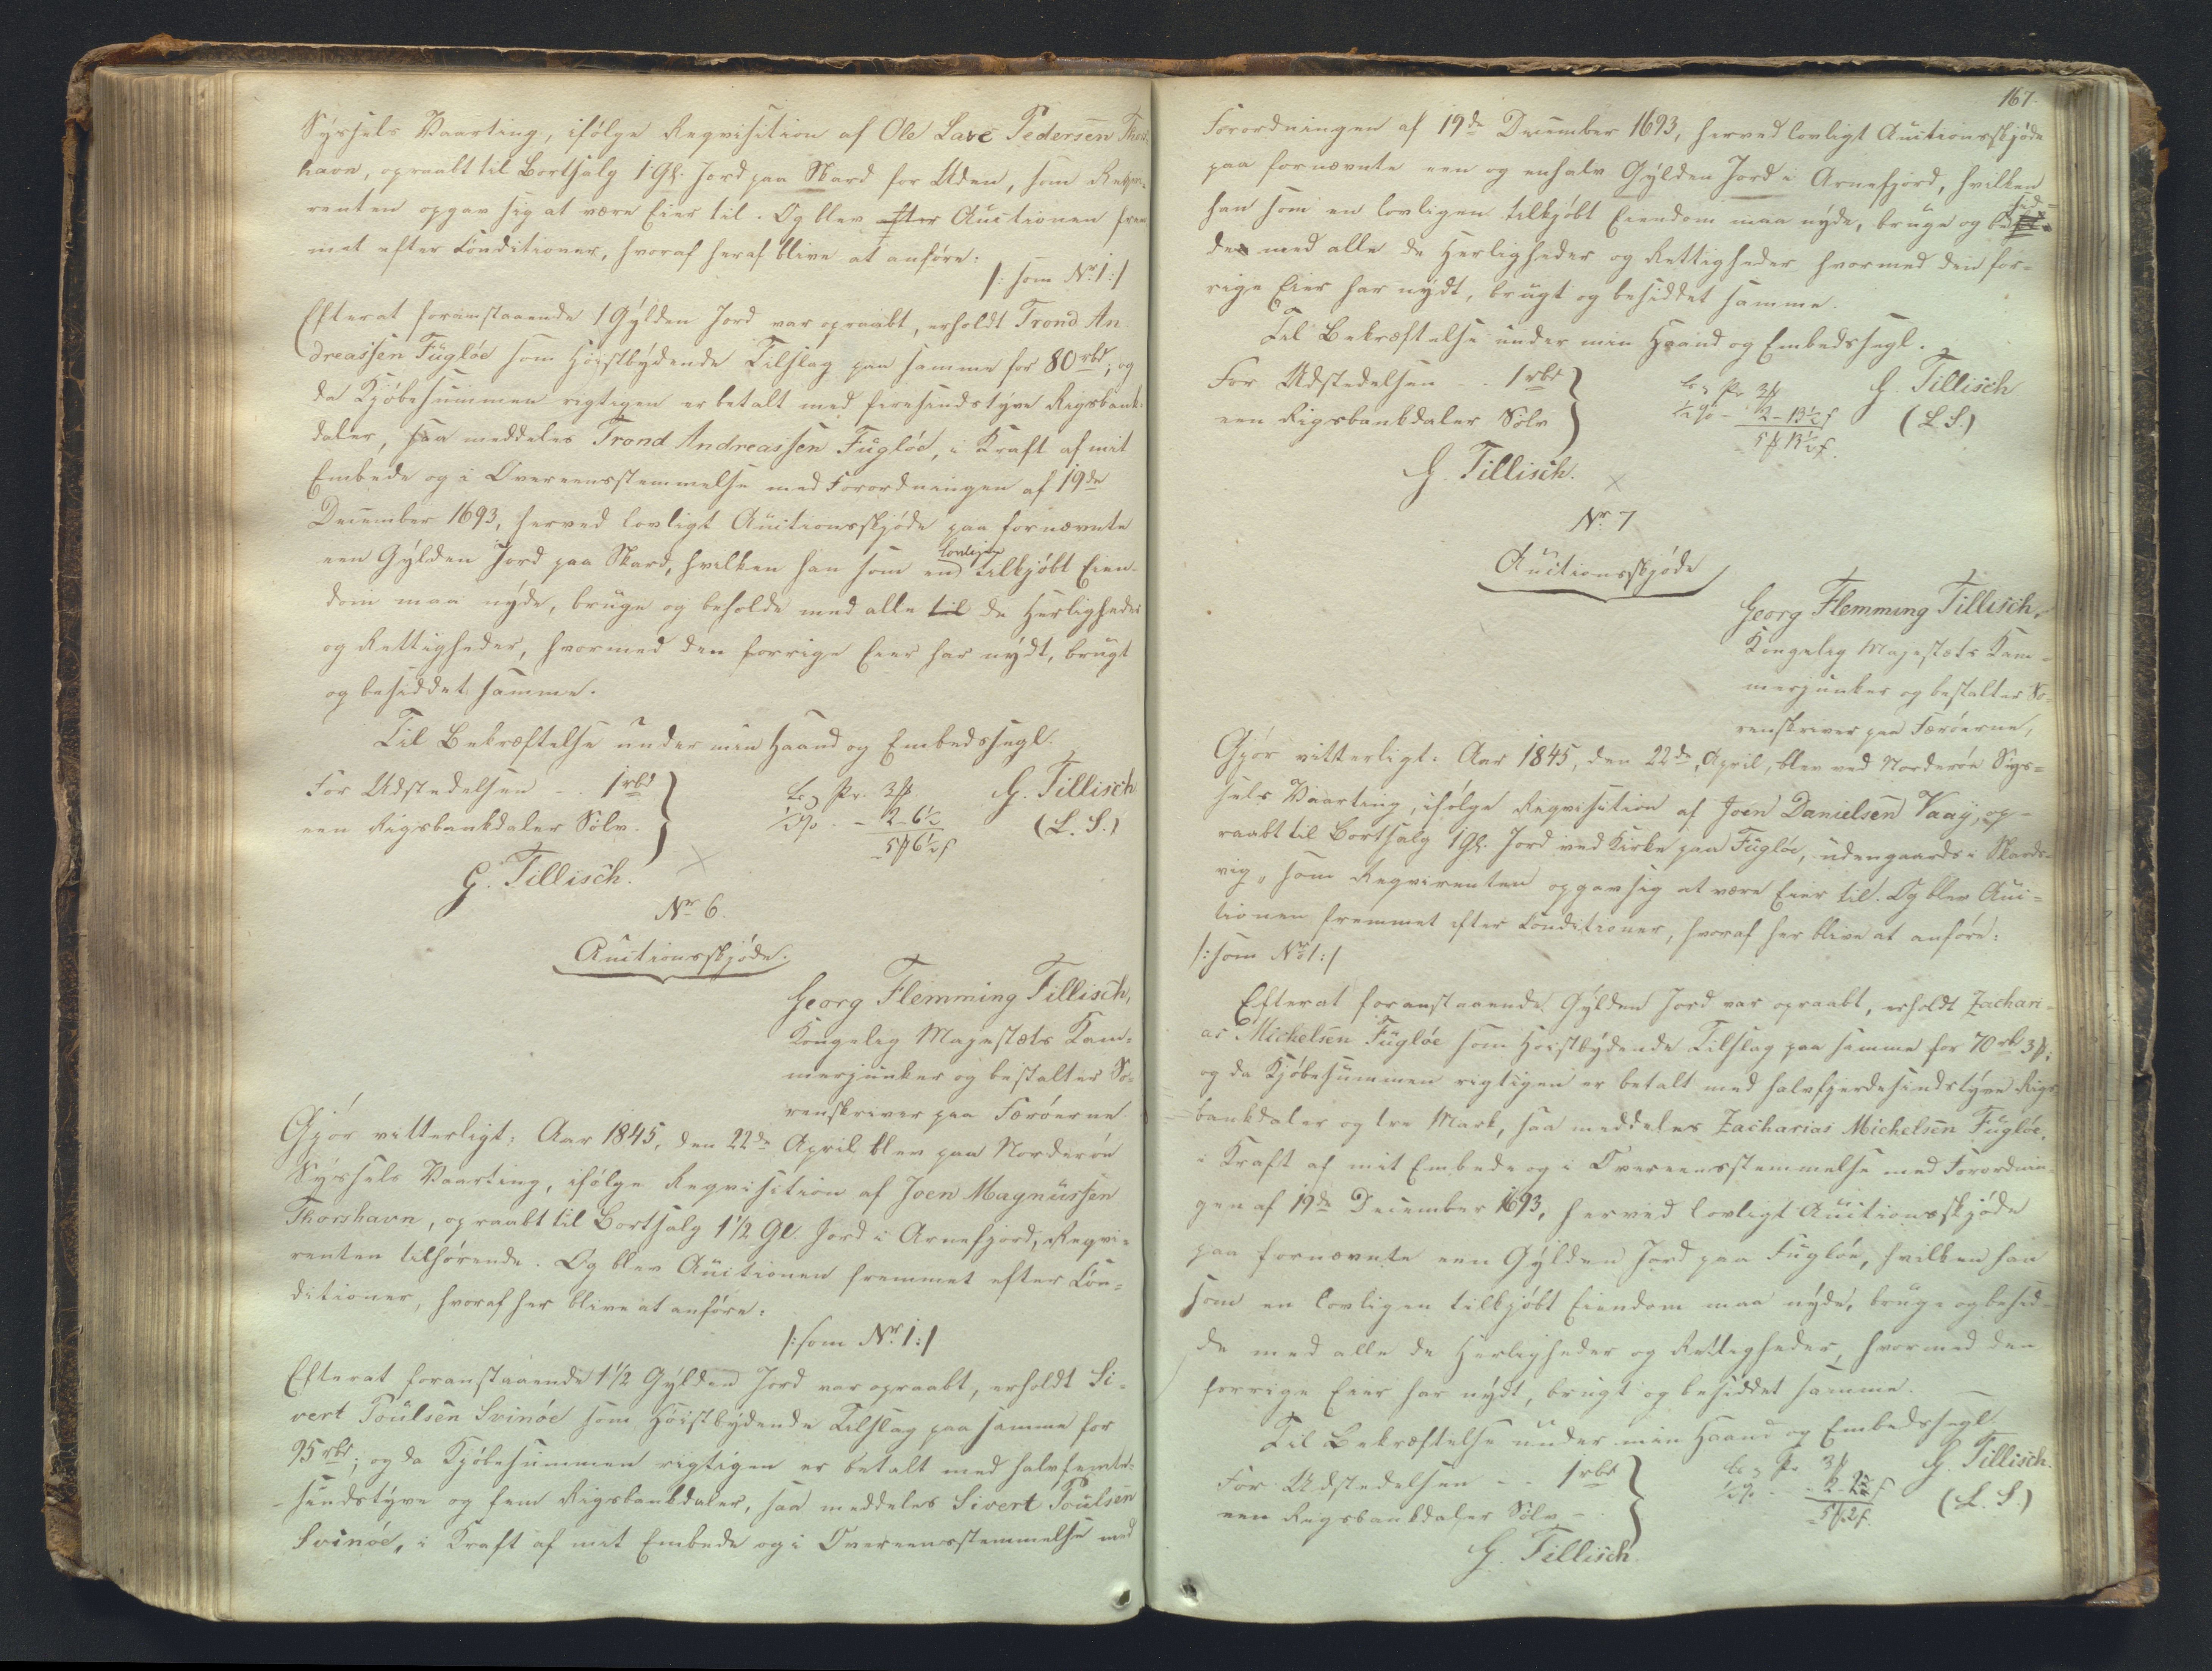 Sÿssels Vaarting, ifølge Reqvisition af Ole Lave Pedersen Thors¬
havn, opraabt til Bortsalg 1 Gl. Jord paa Skard for Uden, som Reqvi¬
renten opgav sig at være Eier til. Og blev efter Auctionen frem
met efter Conditioner, hvoraf heraf blive at anføre:
/: som No 1:/
Efterat foranstaaende 1 Gÿlden Jord var opraabt, erholdt Trond An
dreassen Fugløe som Høistbÿdende Tilslag paa samme for 80 rbd; og
da Kjøbesummen rigtigen er betalt med firesindstÿve Rigsbank¬
daler, saa meddeles Trond Andreassen Fugløe, i Kraft af mit
Embede og i Overeensstemmelse med Forordningen af 19de
December 1693, herved lovligt Auctionsskjøde paa fornævnte
een Gÿlden Jord paa Skard, hvilken han som en lovligen tilkjøbt Eien¬
dom maa nÿde, bruge og beholde med alle til de Herligheder
og Rettigheder, hvormed den forrige Eier har nÿdt, brugt
og besiddet samme.
Til Bekræftelse under min Haand og Embedssegl.
For Udstedelsen - . 1 rbd
een Rigsbankdaler Sølv.
G. Tillisch.
3 ß
½ % - 2 - 6½
5 ß 6½ f
G. Tillisch
(L. S.)
No 6.
Auctionsskjøde.
Georg Flemming Tillisch,
Kongelig Majestæts Kam¬
merjunker og bestalter So¬
renskriver paa Færøerne
Gjør vitterligt: Aar 1845, den 22de April blev paa Norderøe
Sÿssels Vaarting, ifølge Reqvisition af Joen Magnussen
Thorshavn, opraabt til Bortsalg 1 1/2 Gl. Jord i Arnefjord, Reqvi¬
renten tilhørende. Og blev Auctionen fremmet efter Con¬
ditioner, hvoraf her blive at anføre:
/: som No 1:/
Efterat foranstaaende 1 1/2 Gÿlden Jord var opraabt, erholdt Si¬
vert Poulsen Svinøe som Høistbÿdende Tilslag paa samme for
95 rbd; og da Kjøbesummen rigtigen er betalt med halvfemte¬
sindstÿve og fem Rigsbankdaler, saa meddeles Sivert Poulsen
Svinøe, i Kraft af mit Embede og i Overeensstemmelse med
167.
Forordningen af 19de December 1693, herved lovligt Auctionsskjøde
paa fornævnte een og enhalv Gÿlden Jord i Arnefjord, hvilken
han som en lovligen tilkjøbt Eiendom maa nÿde, bruge og besid¬
de med alle de Herligheder og Rettigheder hvormed den for¬
rige Eier har nÿdt, brugt og besiddet samme.
Til Bekræftelse under min Haand og Embedssegl.
For Udstedelsen - . 1 rbd
een Rigsbankdaler Sølv
G. Tillisch.
3 ß
½ % - 2 - 13½ f
5 ß 13½ f.
G. Tillisch
(L. S.)
No 7
Auctionsskjøde
Georg Flemming Tillisch,
Kongelig Majestæts Kam¬
merjunker og bestalter So¬
renskriver paa Færøerne,
Gjør vitterligt: Aar 1845, den 22de April, blev ved Norderøe Sÿs¬
sels Vaarting, ifølge Reqvisition af Joen Danielsen Vaaÿ, op¬
raabt til Bortsalg 1 Gl. Jord ved Kirke paa Fugløe, udengaards i Skards¬
vig, som Reqvirenten opgav sig at være Eier til. Og blev Auc¬
tionen fremmet efter Conditioner, hvoraf her blive at anføre:
/: som No 1:/
Efterat foranstaaende Gÿlden Jord var opraabt, erholdt Zachari¬
as Michelsen Fugløe som Høistbÿdende Tilslag paa samme for 70 rbd 3 ß;
og da Kjøbesummen rigtigen er betalt med halvfjerdesindstÿve Rigs
bankdaler og tre Mark, saa meddeles Zacharias Michelsen Fugløe,
i Kraft af mit Embede og i Overeensstemmelse med Forordnin¬
gen af 19de December 1693, herved lovligt Auctionsskjøde
paa fornævnte een Gÿlden Jord paa Fugløe, hvilken han
som en lovligen tilkjøbt Eiendom maa nÿde, bruge og besid¬
de med alle de Herligheder og Rettigheder, hvormed den
forrige Eier har nÿdt, brugt og besiddet samme.
Til Bekræftelse under min Haand og Embedssegl
For Udstedelsen - . 1 rbd
een Rigsbankdaler Sølv - .
G. Tillisch.
3 ß
½ % - 2 - 2 f
5 ß 2 f.
G. Tillisch.
(L. S.)